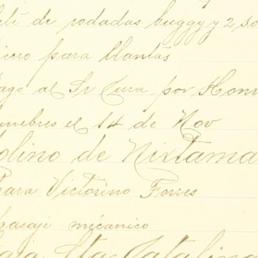 ete de rodadas buggy y 2 so
para llantas
pagó al Sr Cura por Honr
funebres el 14 de Nov
olino de Nixtama
Para Victorino Torres
pasaje mecánico
Sta Catalina